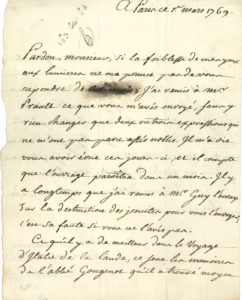 A Paris ce 1er mars 1769.
Pardon, monsieur, si la foiblesse de mes yeux
aux lumieres ne me permet pas de vous
repondre de j'ai remis à Mr.
Prault ce que vous m'avés envoyé, sans y
rien changer que deux ou trois expressions qui
ne m'ont pas paru assés nobles. Il m'a dit
vous avoir écrit ces jours-ci, et il compte
que l'ouvrage paroitra dans un mois. Il y
a longtemps que j'ai remis à Mr. Guy l'ouvrage
sur la destruction des jesuites pour vous l'envoyer;
c'est sa faute si vous ne l'avés pas.
Ce qu'il y a de meilleur dans le Voyage
d'Italie de la lande, ce sont les memoires
de l'abbé Gougenot qu'il a trouvé moyen